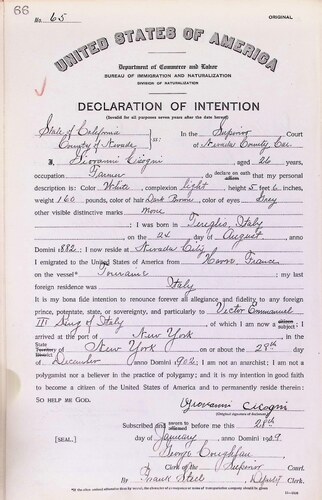 66
ORIGINAL
No. 65
UNITED STATES OF AMERICA
Department of Commerce and Labor
BUREAU OF IMMIGRATION AND NATURALIZATION
DIVISION OF NATURALIZATION
DECLARATION OF INTENTION
(Invalid for all purposes seven years after the date hereof)
State of California
County of Nevada ss:
In the Superior Court
of Nevada County Cal
I, Giovanni Cicogni, aged 26 years,
occupation Farmer, do declare on oath that my personal
description is: Color White, complexion light, height 5 feet 6 inches,
weight 160 pounds, color of hair Dark Brown, color of eyes Grey
other visible distinctive marks none
; I was born in Tereglio, Italy
on the 24 day of August, anno
Domini 1882; I now reside at Nevada City
I emigrated to the United States of America from Havre, France
on the vessel Touraine; my last
foreign residence was Italy
It is my bona fide intention to renounce forever all allegiance and fidelity to any foreign
prince, potentate, state, or sovereignty, and particularly to Victor Emmanuel
III King of Italy, of which I am now a subject; I
arrived at the port of New York, in the
State of New York on or about the 29th day
of December, anno Domini 1902; I am not an anarchist; I am not a
polygamist nor a believer in the practice of polygamy; and it is my intention in good faith
to become a citizen of the United States of America and to permanently reside therein:
SO HELP ME GOD.
Giovanni Cicogni
(Original signature of declarant)
Subscribed and sworn to before me this 28th
[SEAL.] day of January, anno Domini 1909
George Coughlan
Clerk of the Superior Court.
By Frank Steel, Deputy Clerk.